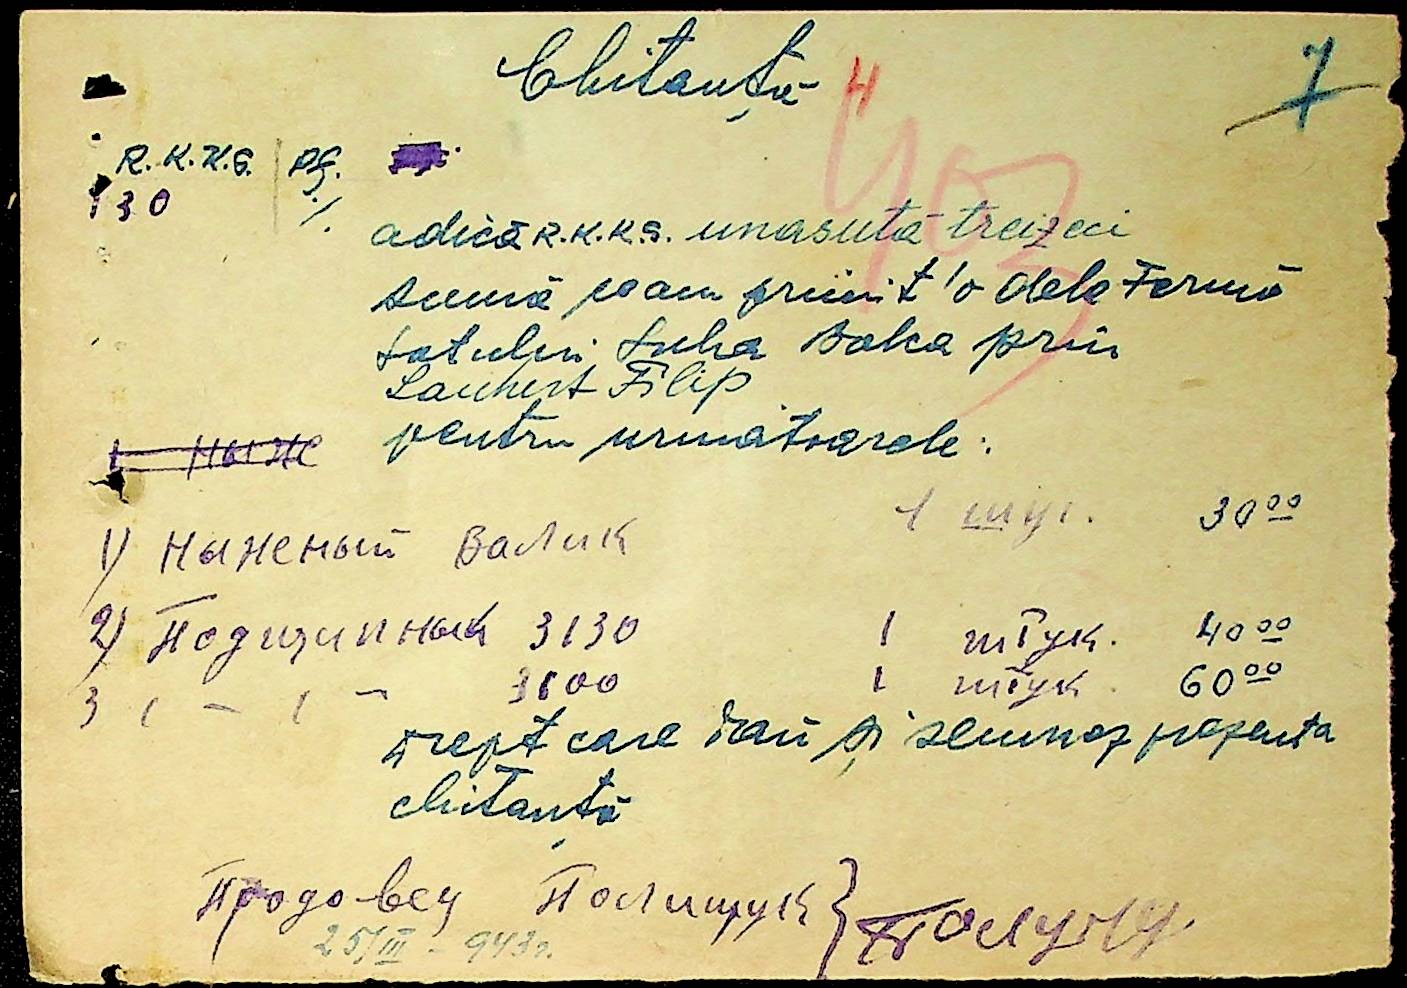 Chitanță 4 7
403
R.K.K.S. pf.
130 %
adică R.K.K.S. unasută treizeci
sumă ce am primit'o dela Fermă
Satului Suha Balca prin
Lambert Filip
pentru urmatoarele:
1 Ныже
1) Ныженый Валик 1 штук. 30 00
2) Подщипнык 3130 1 штук. 40 00
3 " — " — 3600 1 штук. 60 00
drept care dau și semnez prezenta
chitanță
Продовец Полищук } Полищук
25/III - 943 г.